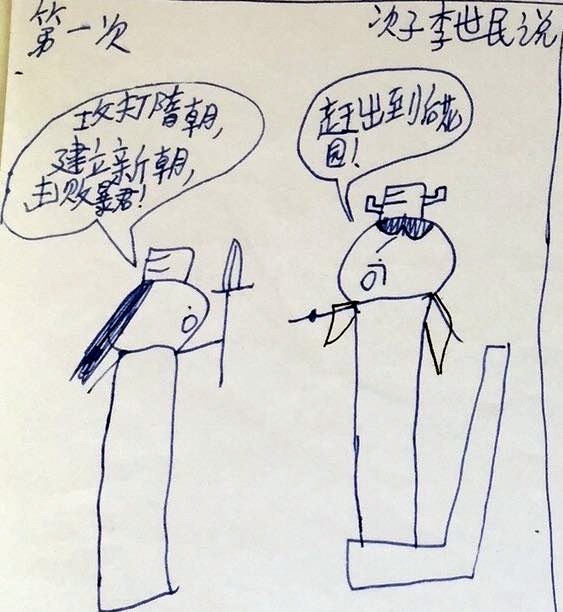 第一次
次子李世民说
攻打隋朝,
建立新朝,
击败暴君!
赶出到后花
园!